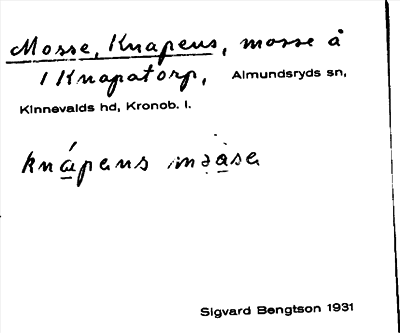 Mosse, Knapens, mosse å
1 Knapatorp, Almundsryds sn,
Kinnevalds hd, Kronob. l.
knápens
Sigvard Bengtson 1931